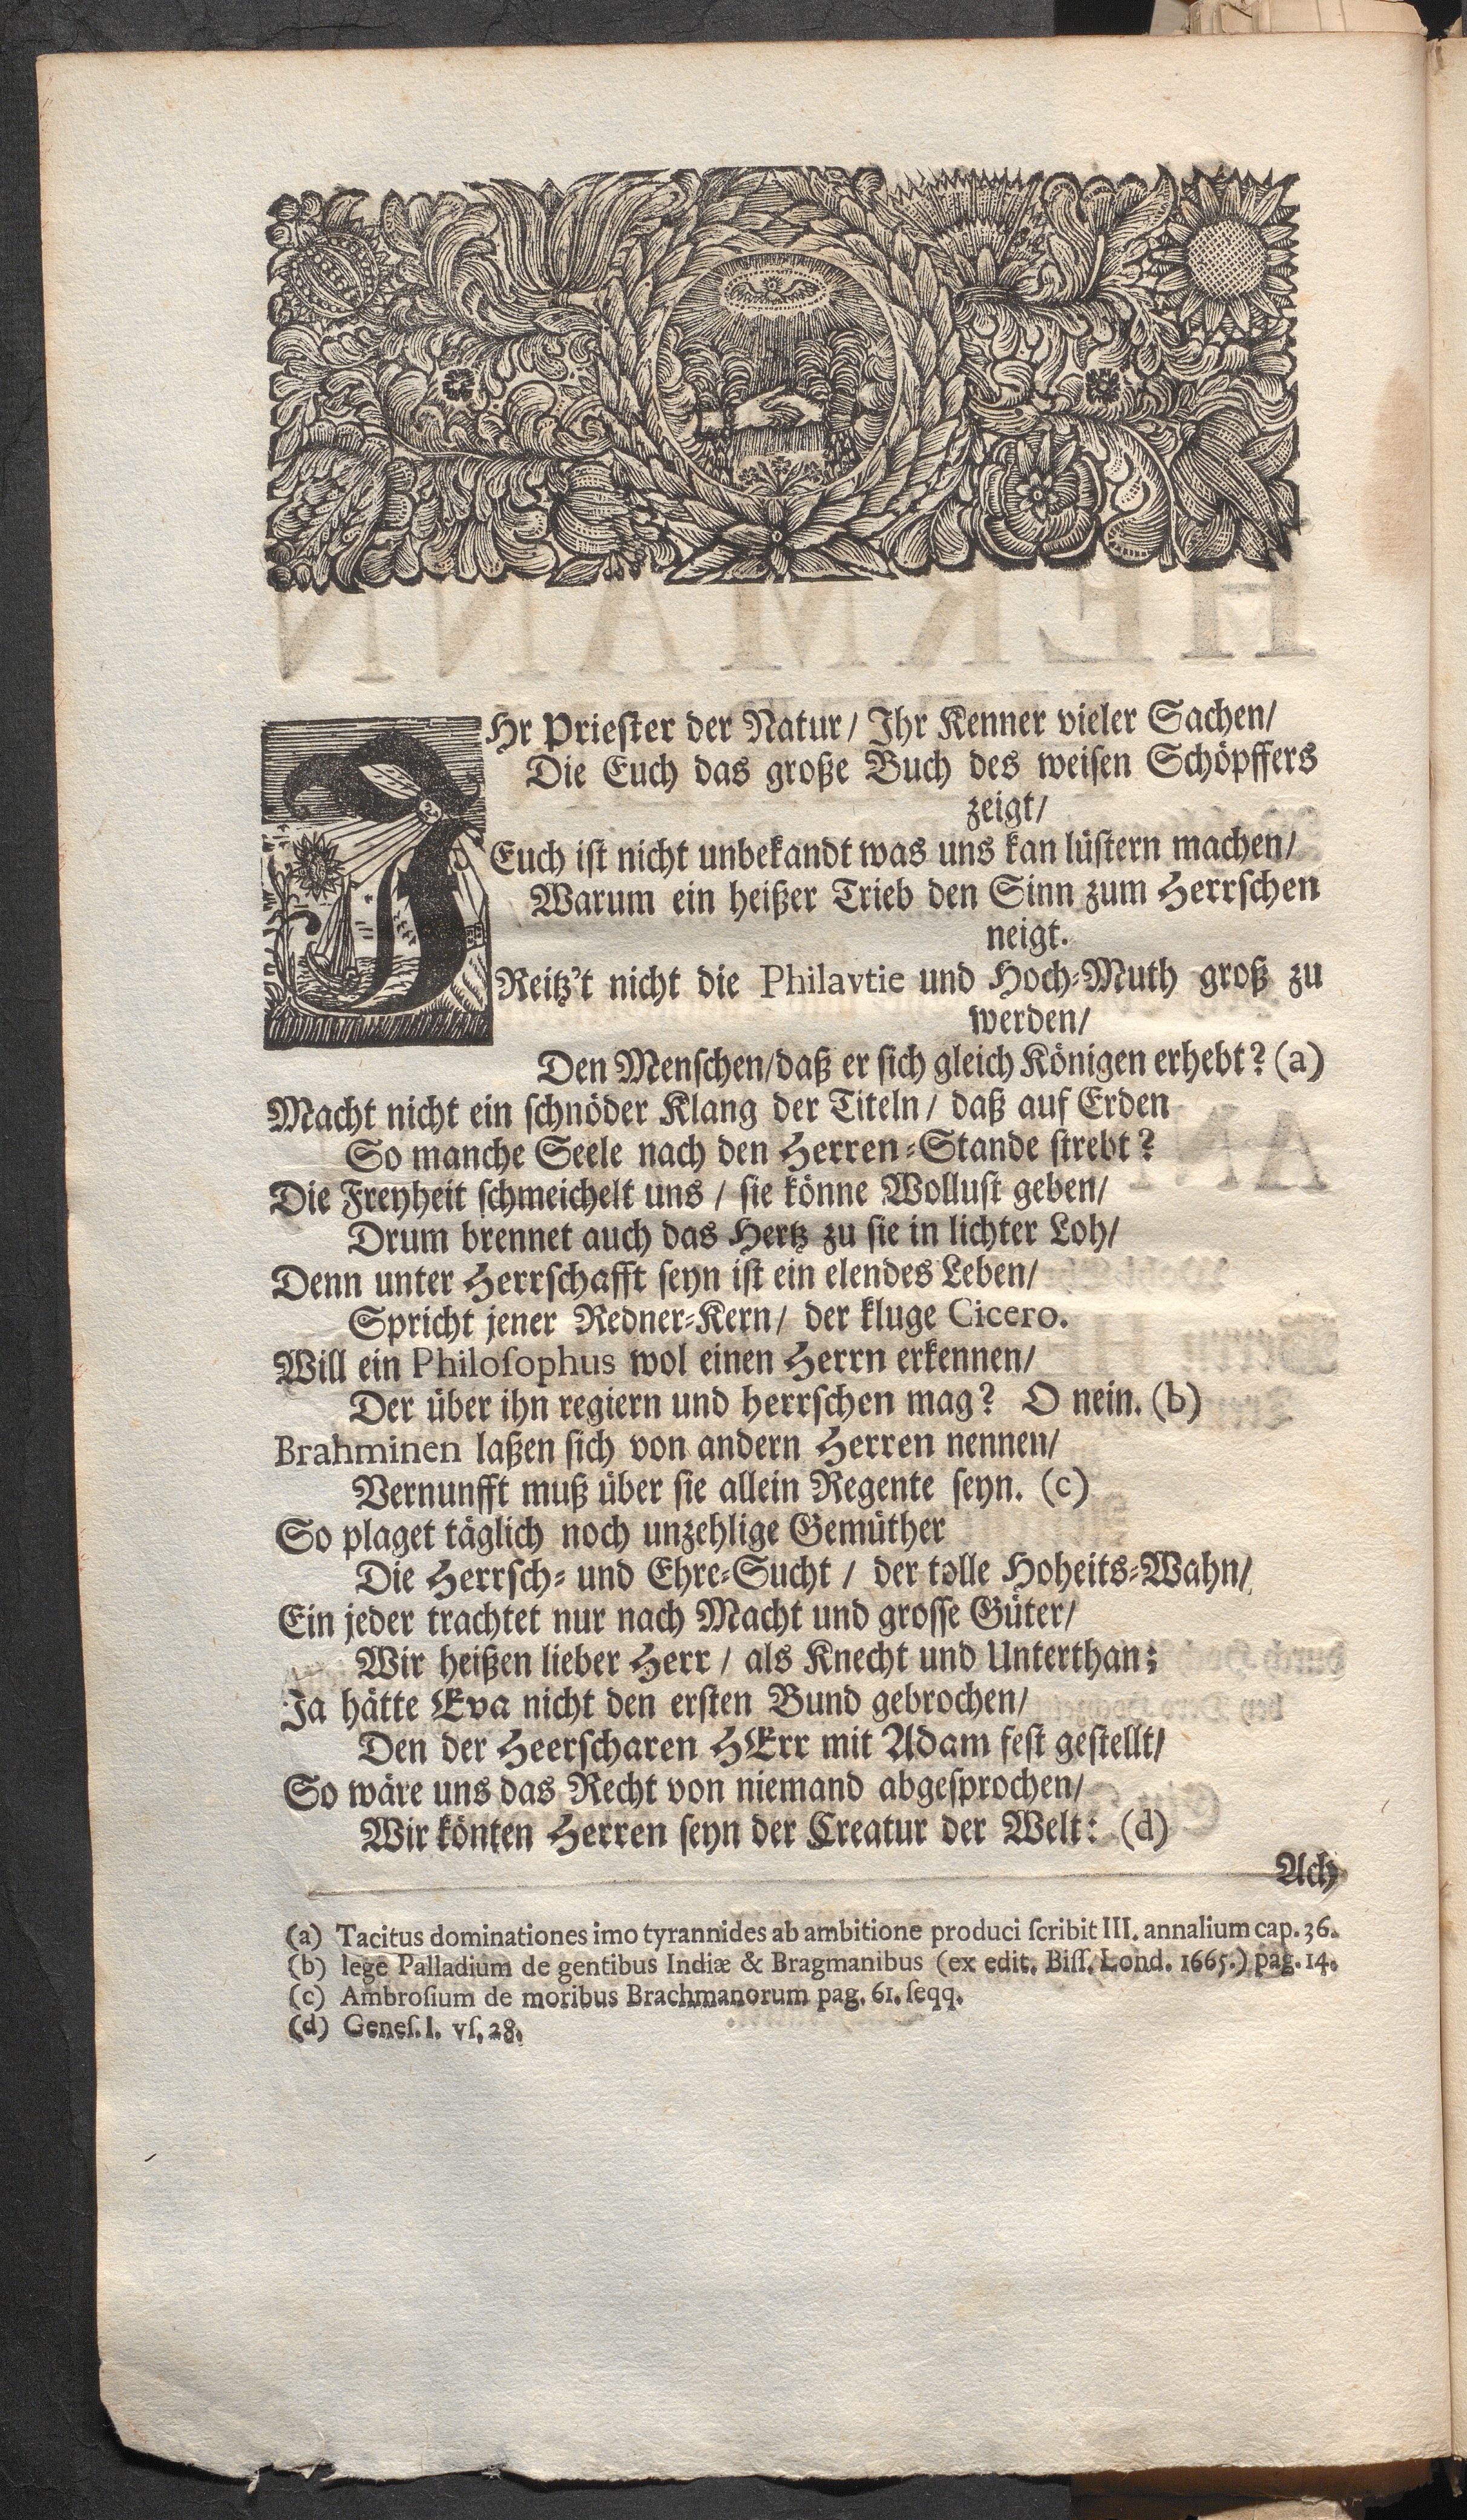 IHr Priester der Natur/ Ihr Kenner vieler Sachen/
Die Euch das große Buch des weisen Schöpffers
zeigt/
Euch ist nicht unbekandt was uns kan lüstern machen/
Warum ein heißer Trieb den Sinn zum Herrschen
neigt.
Reitz't nicht die Philavtie und Hoch-Muth groß zu
werden/
Den Menschen/daß er sich gleich Königen erhebt? (a)
Macht nicht ein schnöder Klang der Titeln/ daß auf Erden
So manche Seele nach den Herren-Stande strebt?
Die Freyheit schmeichelt uns/ sie könne Wollust geben/
Drum brennet auch das Hertz zu sie in lichter Loh/
Denn unter Herrschafft seyn ist ein elendes Leben/
Spricht jener Redner-Kern/ der kluge Cicero.
Will ein Philosophus wol einen Herrn erkennen/
Der über ihn regiern und herrschen mag? O nein. (b)
Brahminen laßen sich von andern Herren nennen/
Vernunfft muß über sie allein Regente seyn. (c)
So plaget täglich noch unzehlige Gemüther
Die Herrsch- und Ehre-Sucht/ der tolle Hoheits-Wahn/
Ein jeder trachtet nur nach Macht und grosse Güter/
Wir heißen lieber Herr/ als Knecht und Unterthan;
Ja hätte Eva nicht den ersten Bund gebrochen/
Den der Heerscharen HErr mit Adam fest gestellt/
So wäre uns das Recht von niemand abgesprochen/
Wir könten Herren seyn der Creatur der Welt: (d)
Ach
(a) Tacitus dominationes imo tyrannides ab ambitione produci scribit III. annalium cap. 36.
(b) lege Palladium de gentibus Indiæ & Bragmanibus (ex edit. Biss. Lond. 1665.) pag. 14.
(c) Ambrosium de moribus Brachmanorum pag. 61. seqq.
(d) Genes. I. vs. 28.